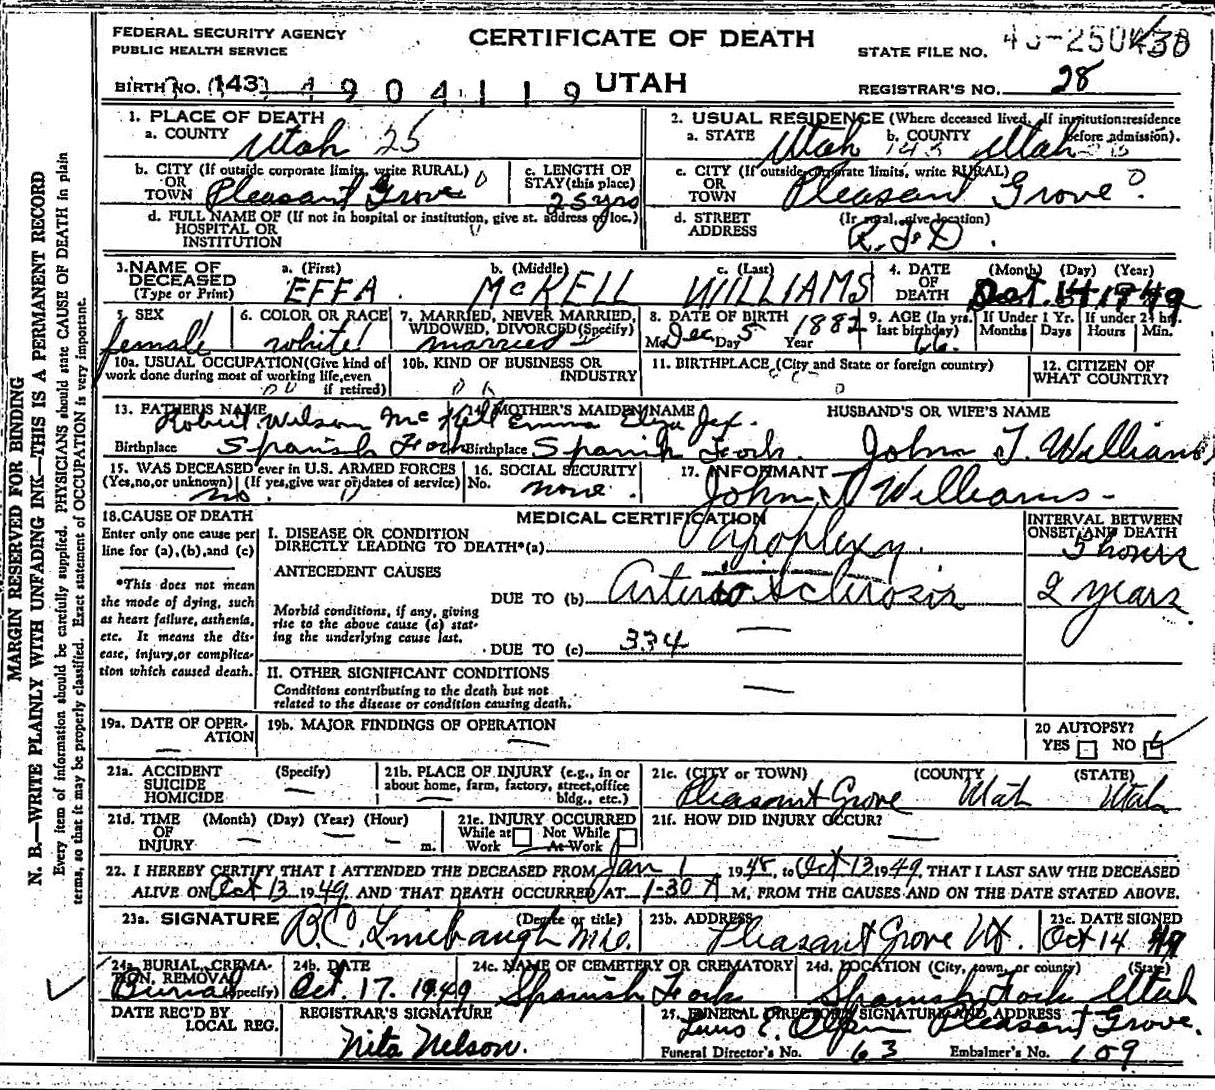 FEDERAL SECURITY AGENCY
PUBLIC HEALTH SERVICE
CERTIFICATE OF DEATH
UTAH
STATE FILE NO.
BIRTH NO. (143) 4904119
REGISTRAR'S NO. 28
1. PLACE OF DEATH
a. COUNTY Utah 25
b. CITY (If outside corporate limits, write RURAL)
OR
TOWN Pleasant Grove
c. LENGTH OF
STAY (this place)
25 yrs
d. FULL NAME OF (If not in hospital or institution, give st. address or loc.)
HOSPITAL OR
INSTITUTION
2. USUAL RESIDENCE (Where deceased lived. If institution:residence
before admission).
a. STATE Utah b. COUNTY Utah
c. CITY (If outside corporate limits, write RURAL)
OR
TOWN Pleasant Grove
d. STREET (If rural, give location)
ADDRESS R.F.D.
3. NAME OF
DECEASED
(Type or Print)
a. (First) EFFA
b. (Middle) McKELL
c. (Last) WILLIAMS
4. DATE
OF
DEATH
(Month) (Day) (Year)
Oct. 14 1949
5. SEX
female
6. COLOR OR RACE
white
7. MARRIED, NEVER MARRIED,
WIDOWED, DIVORCED (Specify)
married
8. DATE OF BIRTH
Mo. Dec. Day 5 Year 1882
9. AGE (In yrs.
last birthday)
66
If Under 1 Yr.
Months Days
If under 24 hrs.
Hours Min.
10a. USUAL OCCUPATION (Give kind of
work done during most of working life, even
if retired)
10b. KIND OF BUSINESS OR
INDUSTRY
11. BIRTHPLACE (City and State or foreign country)
12. CITIZEN OF
WHAT COUNTRY?
13. FATHER'S NAME
Robert Wilson McKell
Birthplace Spanish Fork
14. MOTHER'S MAIDEN NAME
Emma Eliza Jex
Birthplace Spanish Fork.
HUSBAND'S OR WIFE'S NAME
John T. Williams
15. WAS DECEASED ever in U.S. ARMED FORCES
(Yes, no, or unknown) (If yes, give war or dates of service)
no
16. SOCIAL SECURITY
No. none.
17. INFORMANT
John T Williams
18. CAUSE OF DEATH
Enter only one cause per
line for (a), (b), and (c)
*This does not mean
the mode of dying, such
as heart failure, asthenia,
etc. It means the dis-
ease, injury, or complica-
tion which caused death.
MEDICAL CERTIFICATION
I. DISEASE OR CONDITION
DIRECTLY LEADING TO DEATH*(a) Apoplexy
ANTECEDENT CAUSES
DUE TO (b) Arterio Sclerosis
Morbid conditions, if any, giving
rise to the above cause (a) stat-
ing the underlying cause last.
DUE TO (c) 334
II. OTHER SIGNIFICANT CONDITIONS
Conditions contributing to the death but not
related to the disease or condition causing death.
INTERVAL BETWEEN
ONSET AND DEATH
5 hours
2 years
19a. DATE OF OPER-
ATION
19b. MAJOR FINDINGS OF OPERATION
20 AUTOPSY?
YES NO
21a. ACCIDENT (Specify)
SUICIDE
HOMICIDE
21b. PLACE OF INJURY (e.g., in or
about home, farm, factory, street, office
bldg., etc.)
21c. (CITY or TOWN) (COUNTY) (STATE)
Pleasant Grove Utah Utah
21d. TIME (Month) (Day) (Year) (Hour)
OF
INJURY m.
21e. INJURY OCCURRED
While at Work Not While At Work
21f. HOW DID INJURY OCCUR?
22. I HEREBY CERTIFY THAT I ATTENDED THE DECEASED FROM Jan 1 1948, to Oct 13 1949, THAT I LAST SAW THE DECEASED
ALIVE ON Oct 13 1949 AND THAT DEATH OCCURRED AT 1-30 A M, FROM THE CAUSES AND ON THE DATE STATED ABOVE.
23a. SIGNATURE (Degree or title)
B.C. Linebaugh M.D.
23b. ADDRESS
Pleasant Grove Ut.
23c. DATE SIGNED
Oct 14 49
24a. BURIAL, CREMA-
TION, REMOVAL
(Specify)
Burial
24b. DATE
Oct. 17. 1949
24c. NAME OF CEMETERY OR CREMATORY
Spanish Fork
24d. LOCATION (City, town, or county) (State)
Spanish Fork Utah
DATE REC'D BY
LOCAL REG.
REGISTRAR'S SIGNATURE
Nita Nelson.
25. FUNERAL DIRECTOR'S SIGNATURE AND ADDRESS
Olpin Pleasant Grove.
Funeral Director's No. 63 Embalmer's No. 109
MARGIN RESERVED FOR BINDING
N. B.—WRITE PLAINLY WITH UNFADING INK—THIS IS A PERMANENT RECORD
Every item of information should be carefully supplied. PHYSICIANS should state CAUSE OF DEATH in plain
terms, so that it may be properly classified. Exact statement of OCCUPATION is very important.